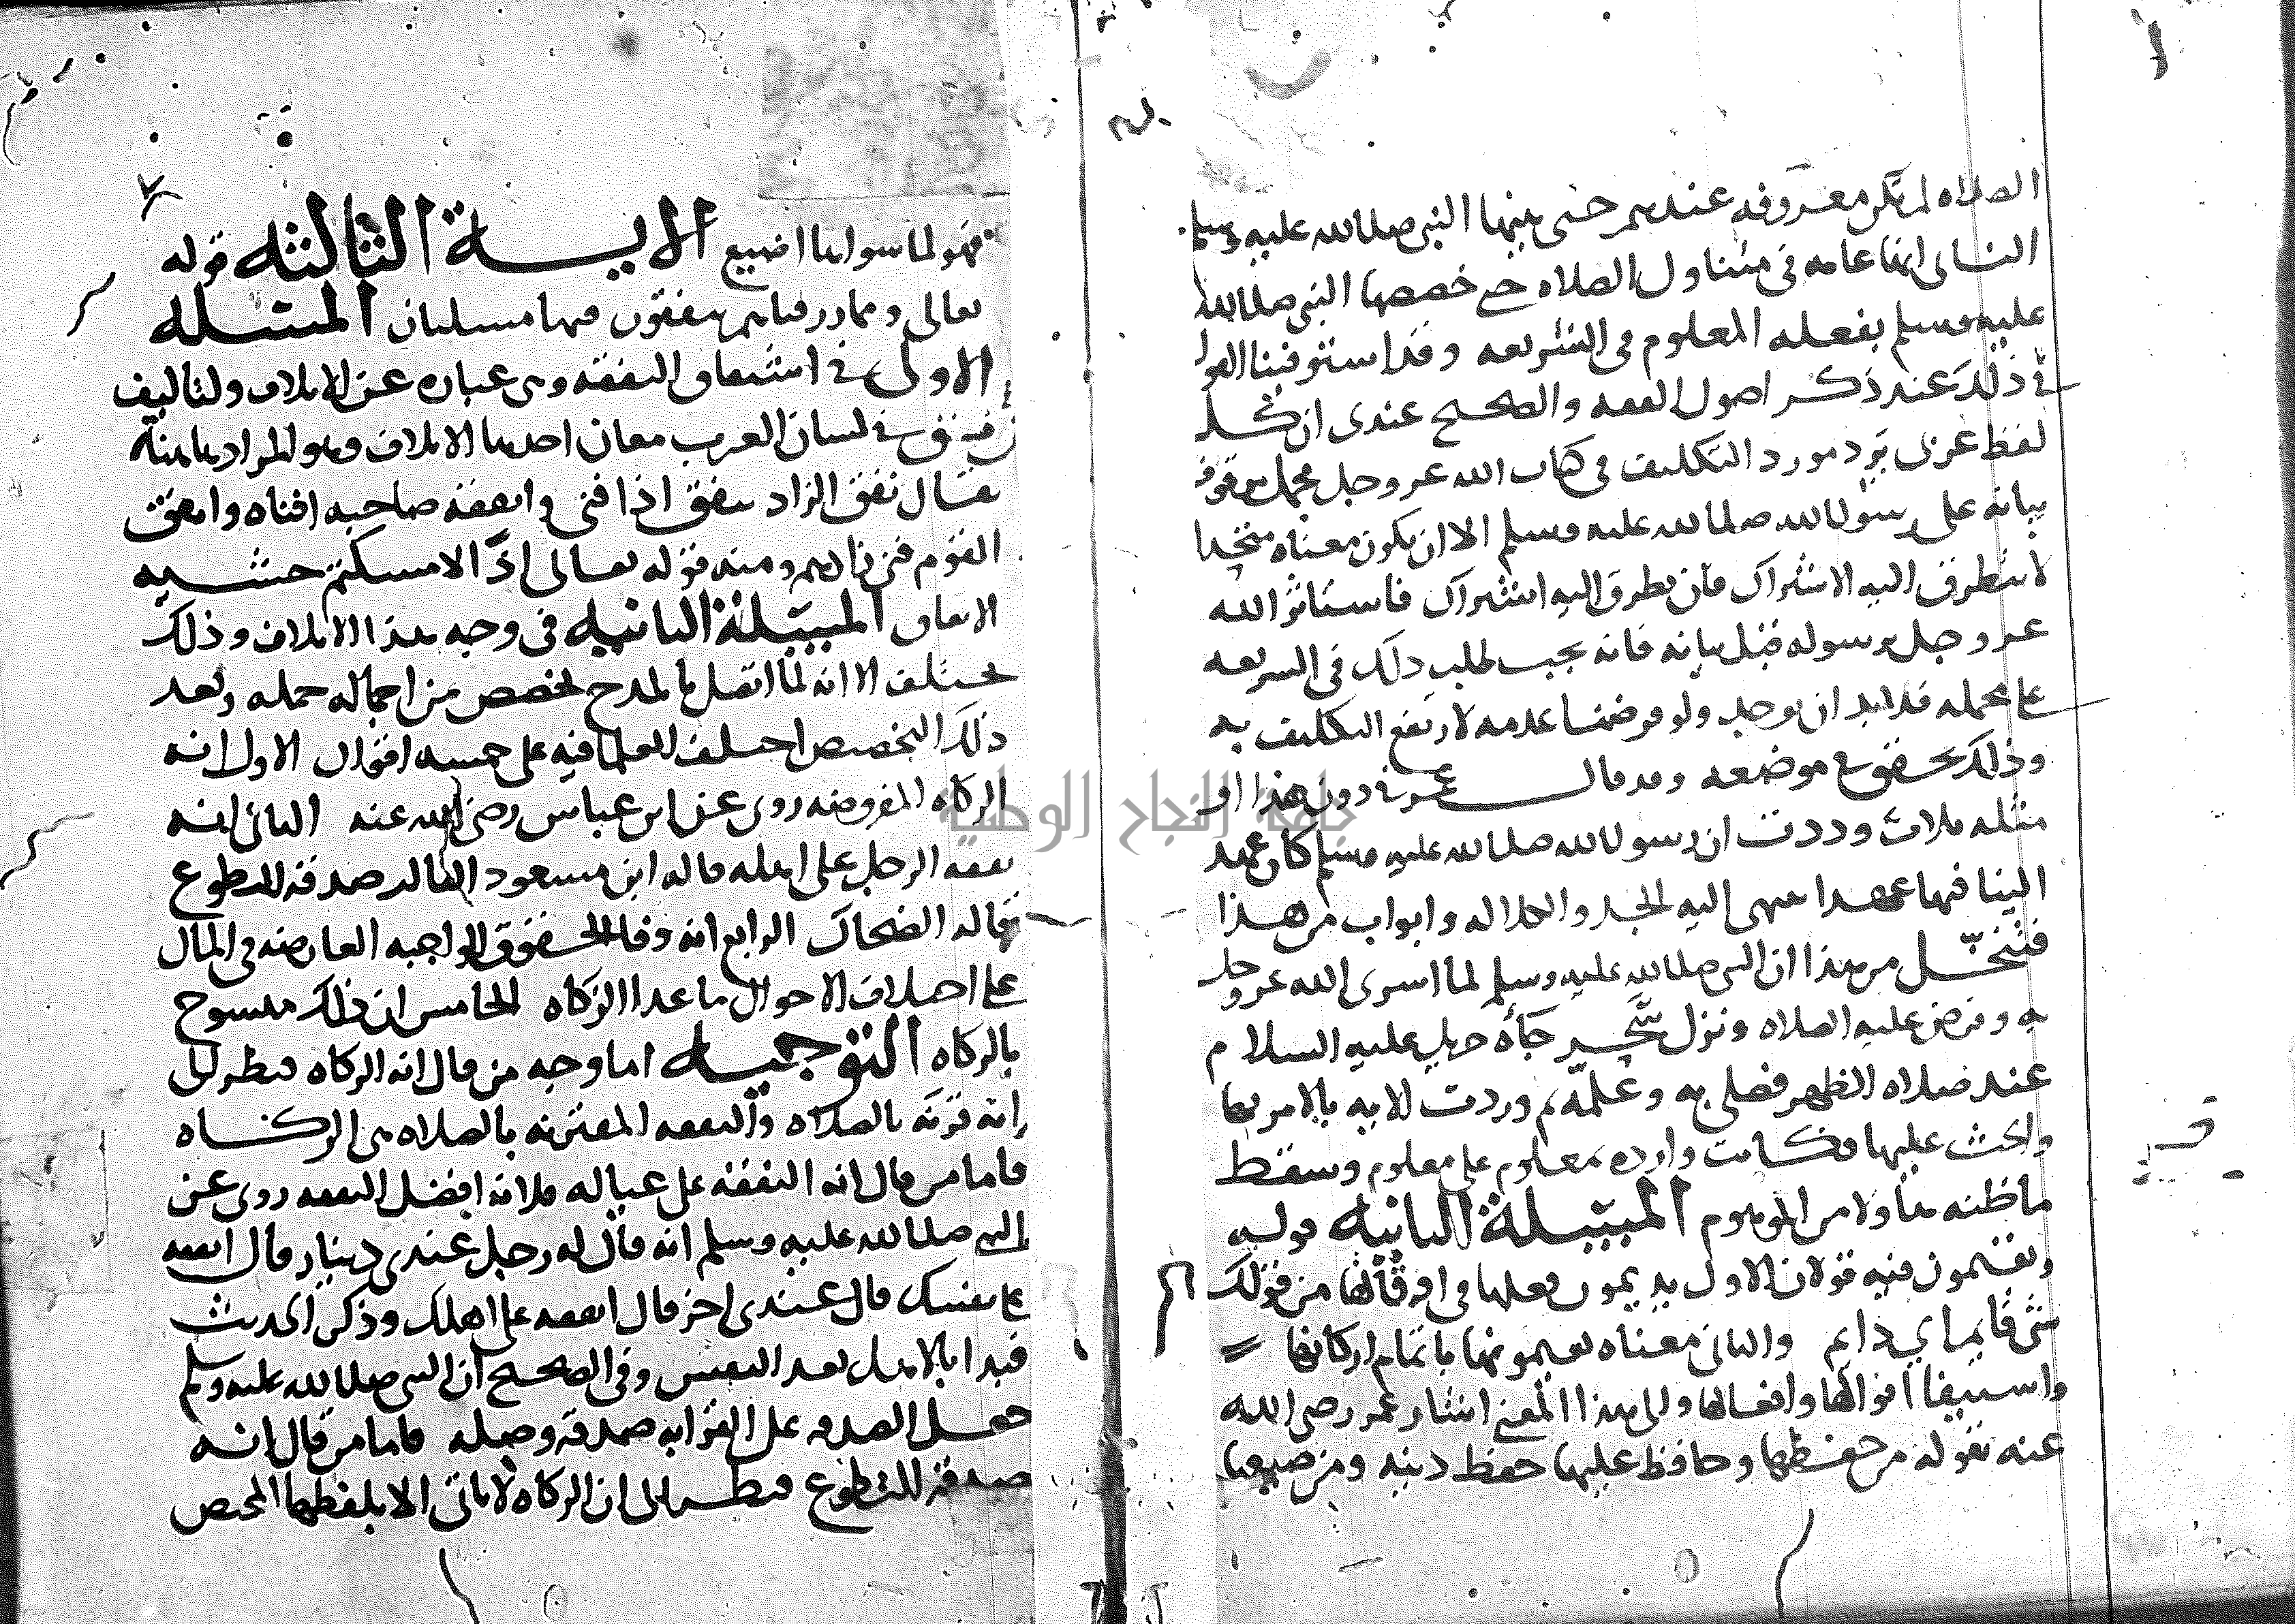 الصلاه لم تكن معروفه عندهم حتى بينها النبي صلى الله عليه وسلم
الثاني انها عامه في متناول الصلاه حتى خصصها النبي صلى الله
عليه وسلم بفعله المعلوم في الشريعه وقد استوفينا القول
في ذلك عند ذكر اصول الفقه والصحيح عندي ان كل
لفظ عربي يرد مورد التكليف في كتاب الله عز وجل مجمل موقوف
بيانه على رسول الله صلى الله عليه وسلم الا ان يكون معناه متحدا
لا يتطرق اليه الاشتراك فان تطرق اليه اشتراك فاستاثر الله
عز وجل برسوله قبل بيانه فانه يجب طلب ذلك في الشريعه
على مجمله فلابد ان يوجد ولو فرضنا عدمه لارتفع التكليف به
وذلك يتحقق في موضعه وقد قال عمر في دون هذا او
مثله ثلاث وددت ان رسول الله صلى الله عليه وسلم كان عهد
الينا فيها عهدا ننتهي اليه الجد والكلاله وابواب من هذا
فتنخل من هذا ان النبي صلى الله عليه وسلم لما اسرى الله عز وجل
به وفرض عليه الصلاه ونزل سحير جاه جبريل عليه السلام
عند صلاه الظهر فصلى به وعلمه ثم وردت الايه بالامر بها
والحث عليها فكانت وارده بمعلوم على معلوم وسقط
ما ظنه هاولا من الموهوم المسئلة الثانية قوله
ويقيمون فيه قولان الاول يديمون فعلها في اوقاتها من قولك
شي قايم اي دايم والثاني معناه يقيمونها باتمام اركانها
واستيفا اقوالها وافعالها والى هذا المعنى اشار عمر رضي الله
عنه بقوله من حفظها وحافظ عليها حفظ دينه ومن ضيعها
٧
فهو لما سواها اضيع الايـــة الثالثه قوله
تعالى ومما رزقناهم ينفقون فيها مسلتان المسئله
الاولى في اشتقاق النفقه وهي عباره عن الاتلاف ولتاليف
ن ف ق في لسان العرب معان احدها الاتلاف وهو المراد هاهنا
يقال نفق الزاد ينفق اذا فني وانفقه صاحبه افناه وانفق
القوم فني زادهم ومنه قوله تعالى اذا لامسكتم خشيه
الانفاق المسئلة الثانيه في وجه هذا الاتلاف وذلك
يختلف الا انه لما اتصل بالمدح تخصص من اجماله جمله وبعد
ذلك التخصص اختلف العلما فيه على خمسه اقوال الاول انه
الزكاه المفروضه روي عن ابن عباس رضي الله عنه الثاني انه
نفقه الرجل على اهله قاله ابن مسعود الثالث صدقه التطوع
قاله الضحاك الرابع انه وفا الحقوق الواجبه العارضه في المال
على اختلاف الاحوال ما عدا الزكاه الخامس ان ذلك منسوخ
بالزكاه التوجيـــه اما وجه من قال انه الزكاه فنظر الى
انه قرنه بالصلاه والنفقه المقترنه بالصلاه هي الزكـــاه
فاما من قال انه النفقه على عياله فلانه افضل النفقه روي عن
النبي صلى الله عليه وسلم انه قال له رجل عندي دينار قال انفقه
على نفسك قال عندي اخر قال انفقه على اهلك وذكر الحديث
فبدا بالاهل بعد النفس وفي الصحيح ان النبي صلى الله عليه وسلم
جعل الصدقه على القرابه صدقه وصله فاما من قال انه
صدقه التطوع فنظر الى ان الزكاه لا تاتي الا بلفظها المختص
جامعة النجاح الوطنية